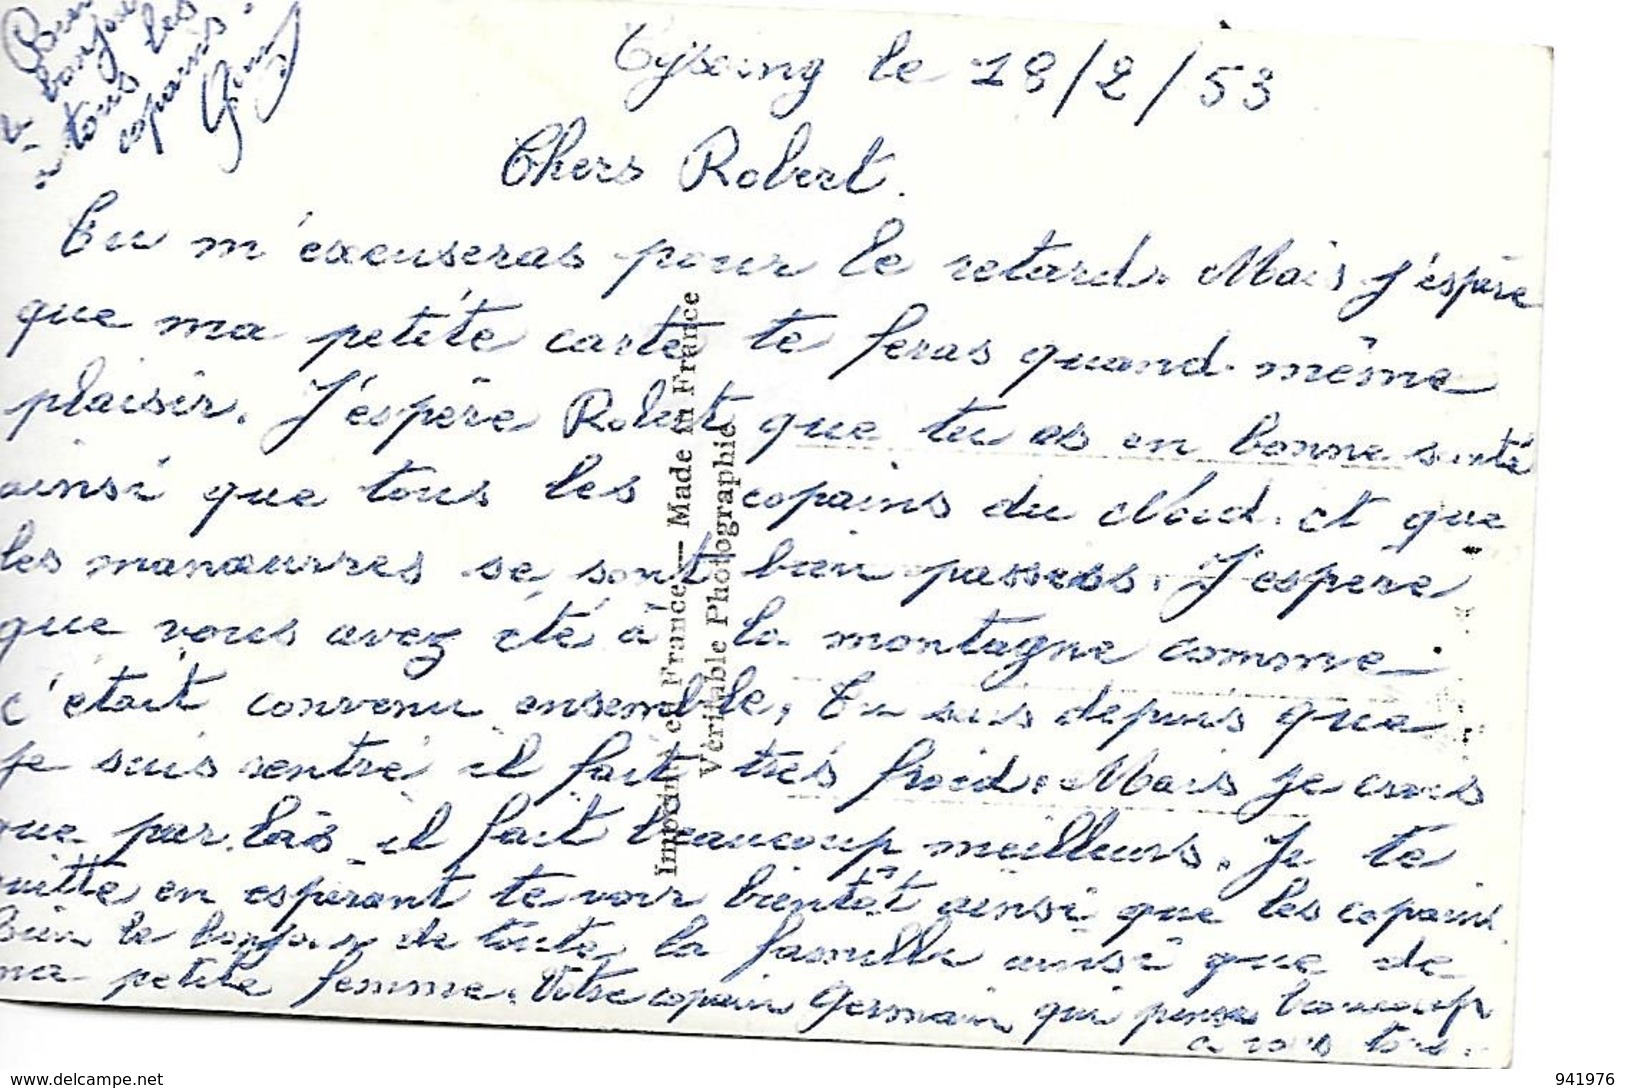 bonjour
à tous les
copains.
Cysoing le 18/2/53
Chers Robert.
Tu m'excuseras pour le retard. Mais j'éspère
que ma petite carte te feras quand-même
plaisir. J'éspère Robert que tu es en bonne santé
ainsi que tous les copains du Nord. et que
les manœuvres se sont bien passées. J'espère
que vous avez été à la montagne comme
c'était convenu ensemble, Tu sais depuis que
je suis rentré il fait très froid. Mais je crois
que par làs il fait beaucoup meilleurs. Je te
quitte en espérant te voir bientôt ainsi que les copains
bien le bonjour de toute la famille ainsi que de
ma petite femme. Votre copain Germain qui pense beaucoup
a vous tous.
Imprimé en France — Made in France
Véritable Photographie
delcampe.net
941976